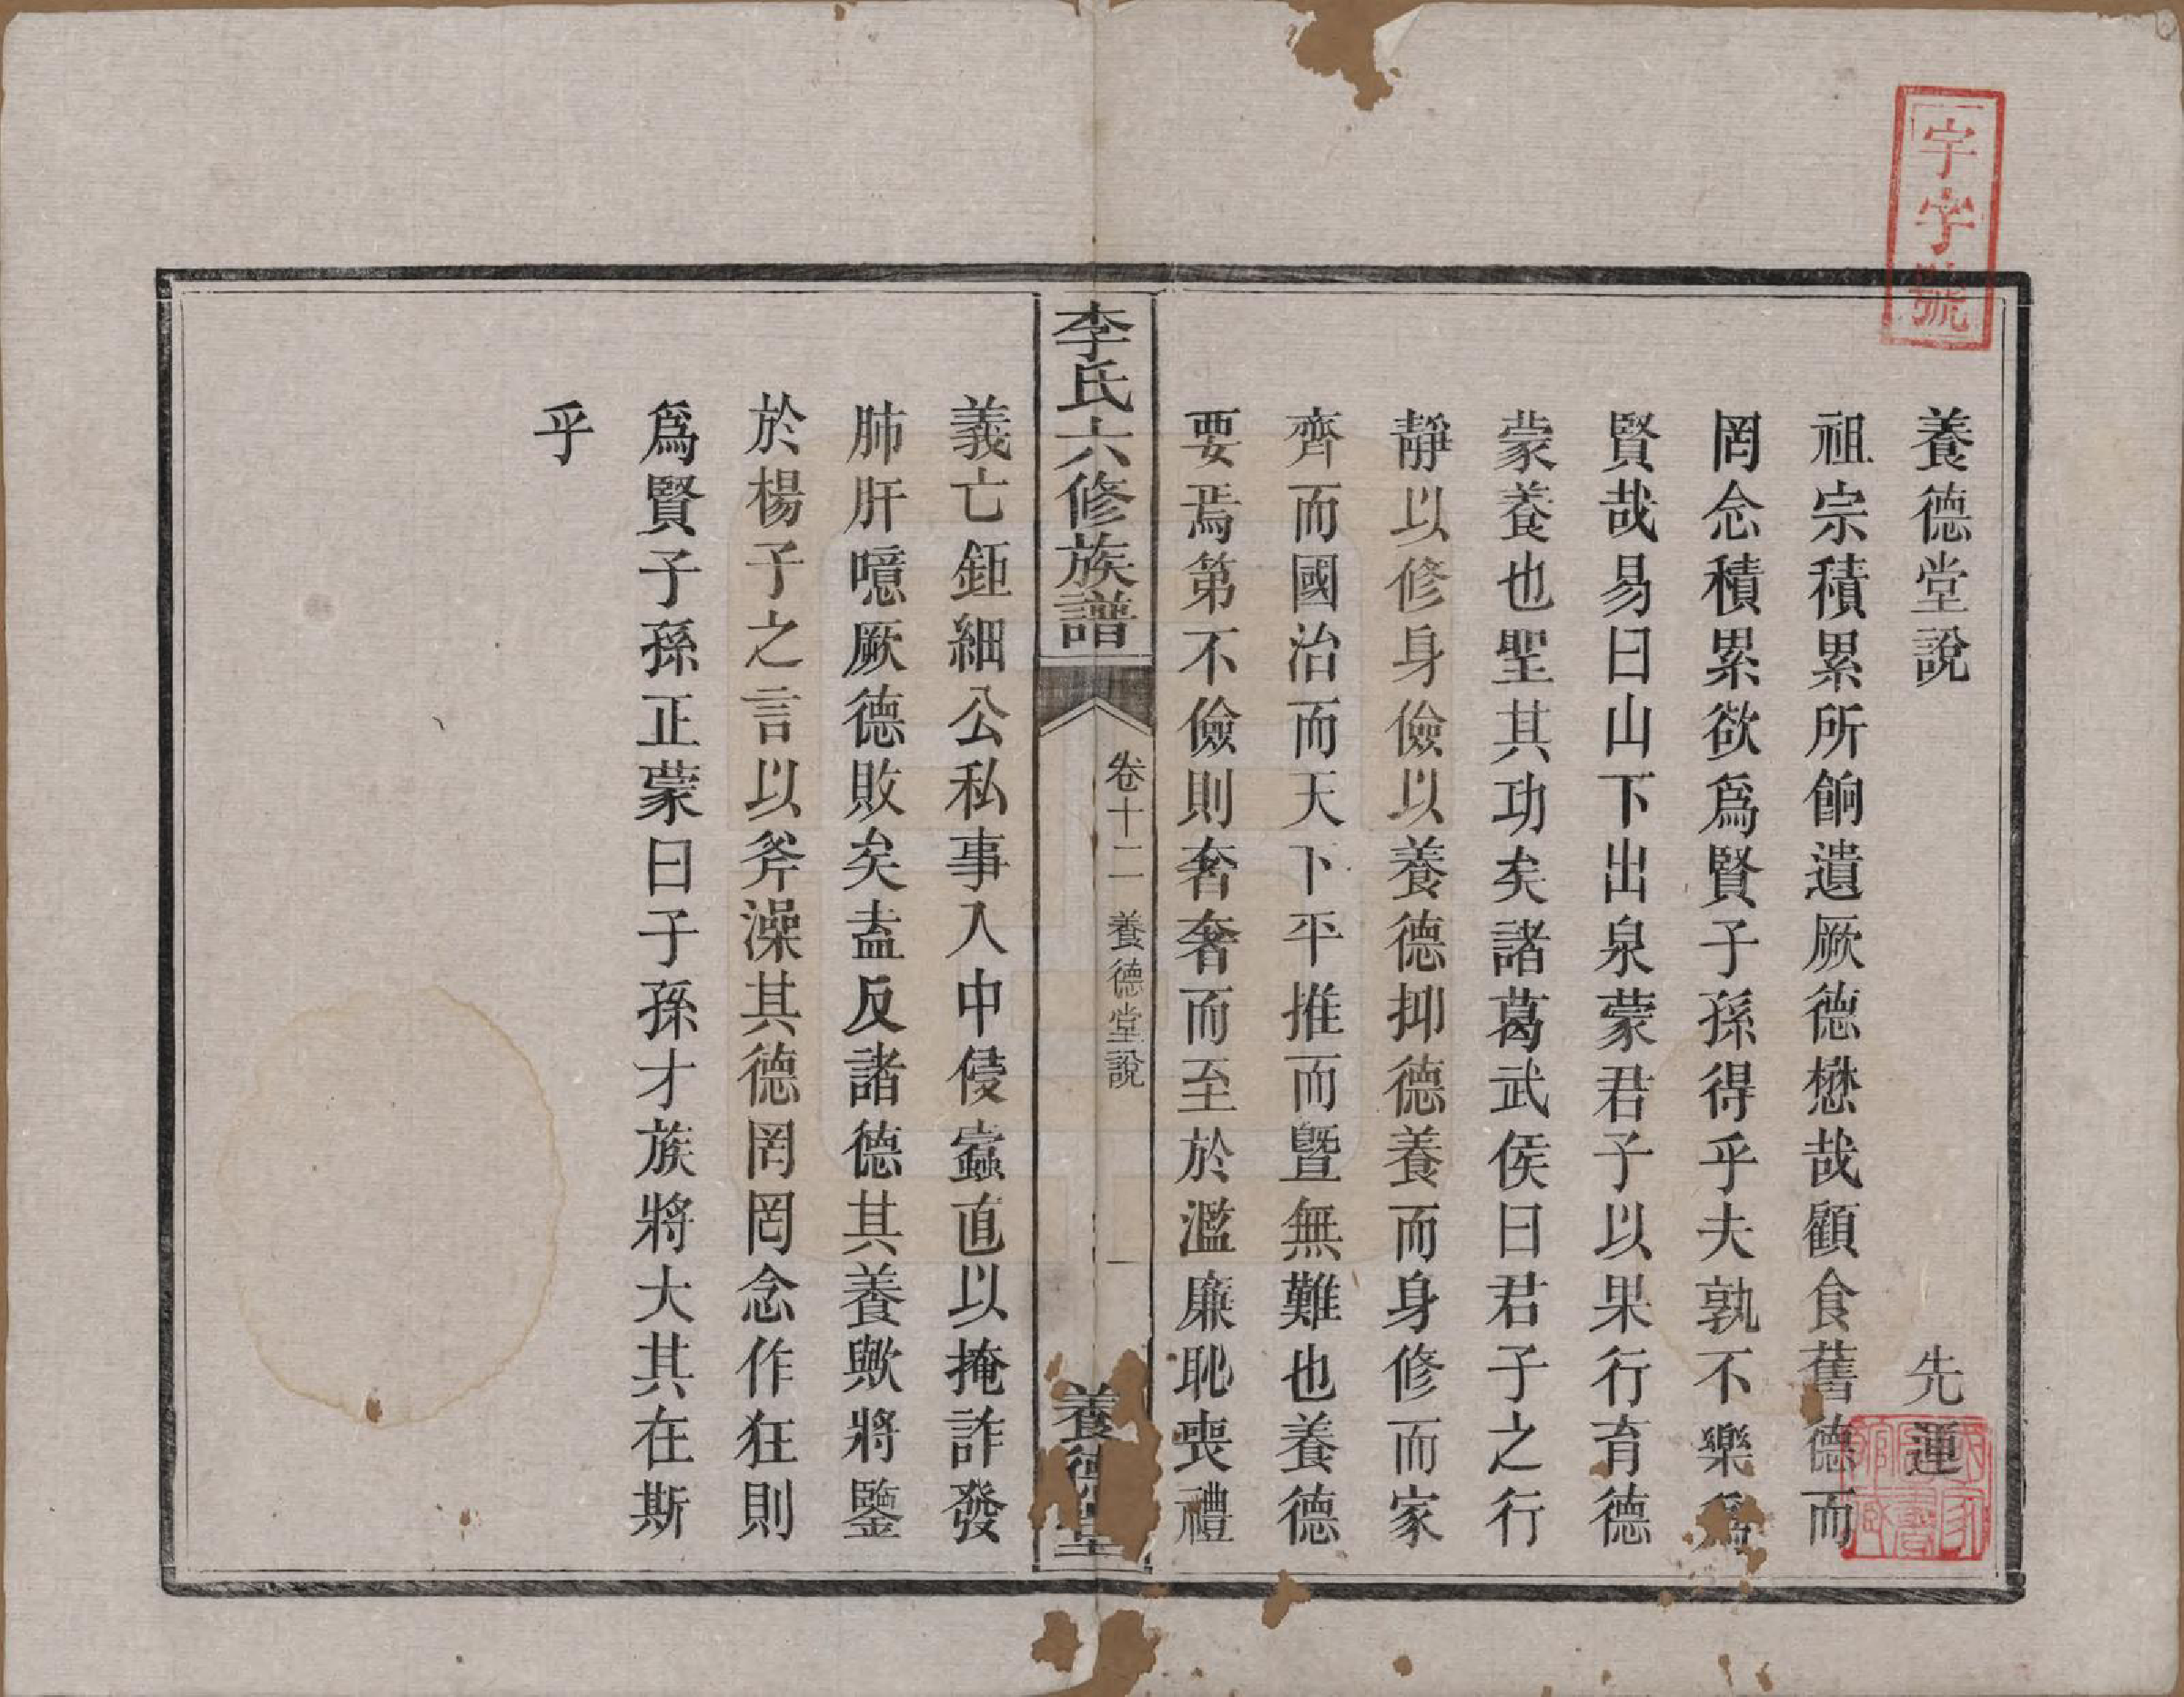 宇字號
養德堂說 先運
祖宗積累所餉遺厥德懋哉顧食舊德而
罔念積累欲爲賢子孫得乎夫孰不樂爲
賢哉易曰山下出泉蒙君子以果行育德
蒙養也聖其功矣諸葛武侯曰君子之行
靜以修身儉以養德抑德養而身修而家
齊而國治而天下平推而曁無難也養德
要焉第不儉則奢奢而至於濫廉恥喪禮
李氏六修族譜
卷十二 養德堂說 一
養德堂
義亡鉅細公私事入中侵蠧直以掩詐發
肺肝噫厥德敗矣盍反諸德其養歟將鑒
於楊子之言以斧澡其德罔罔念作狂則
爲賢子孫正蒙曰子孫才族將大其在斯
乎